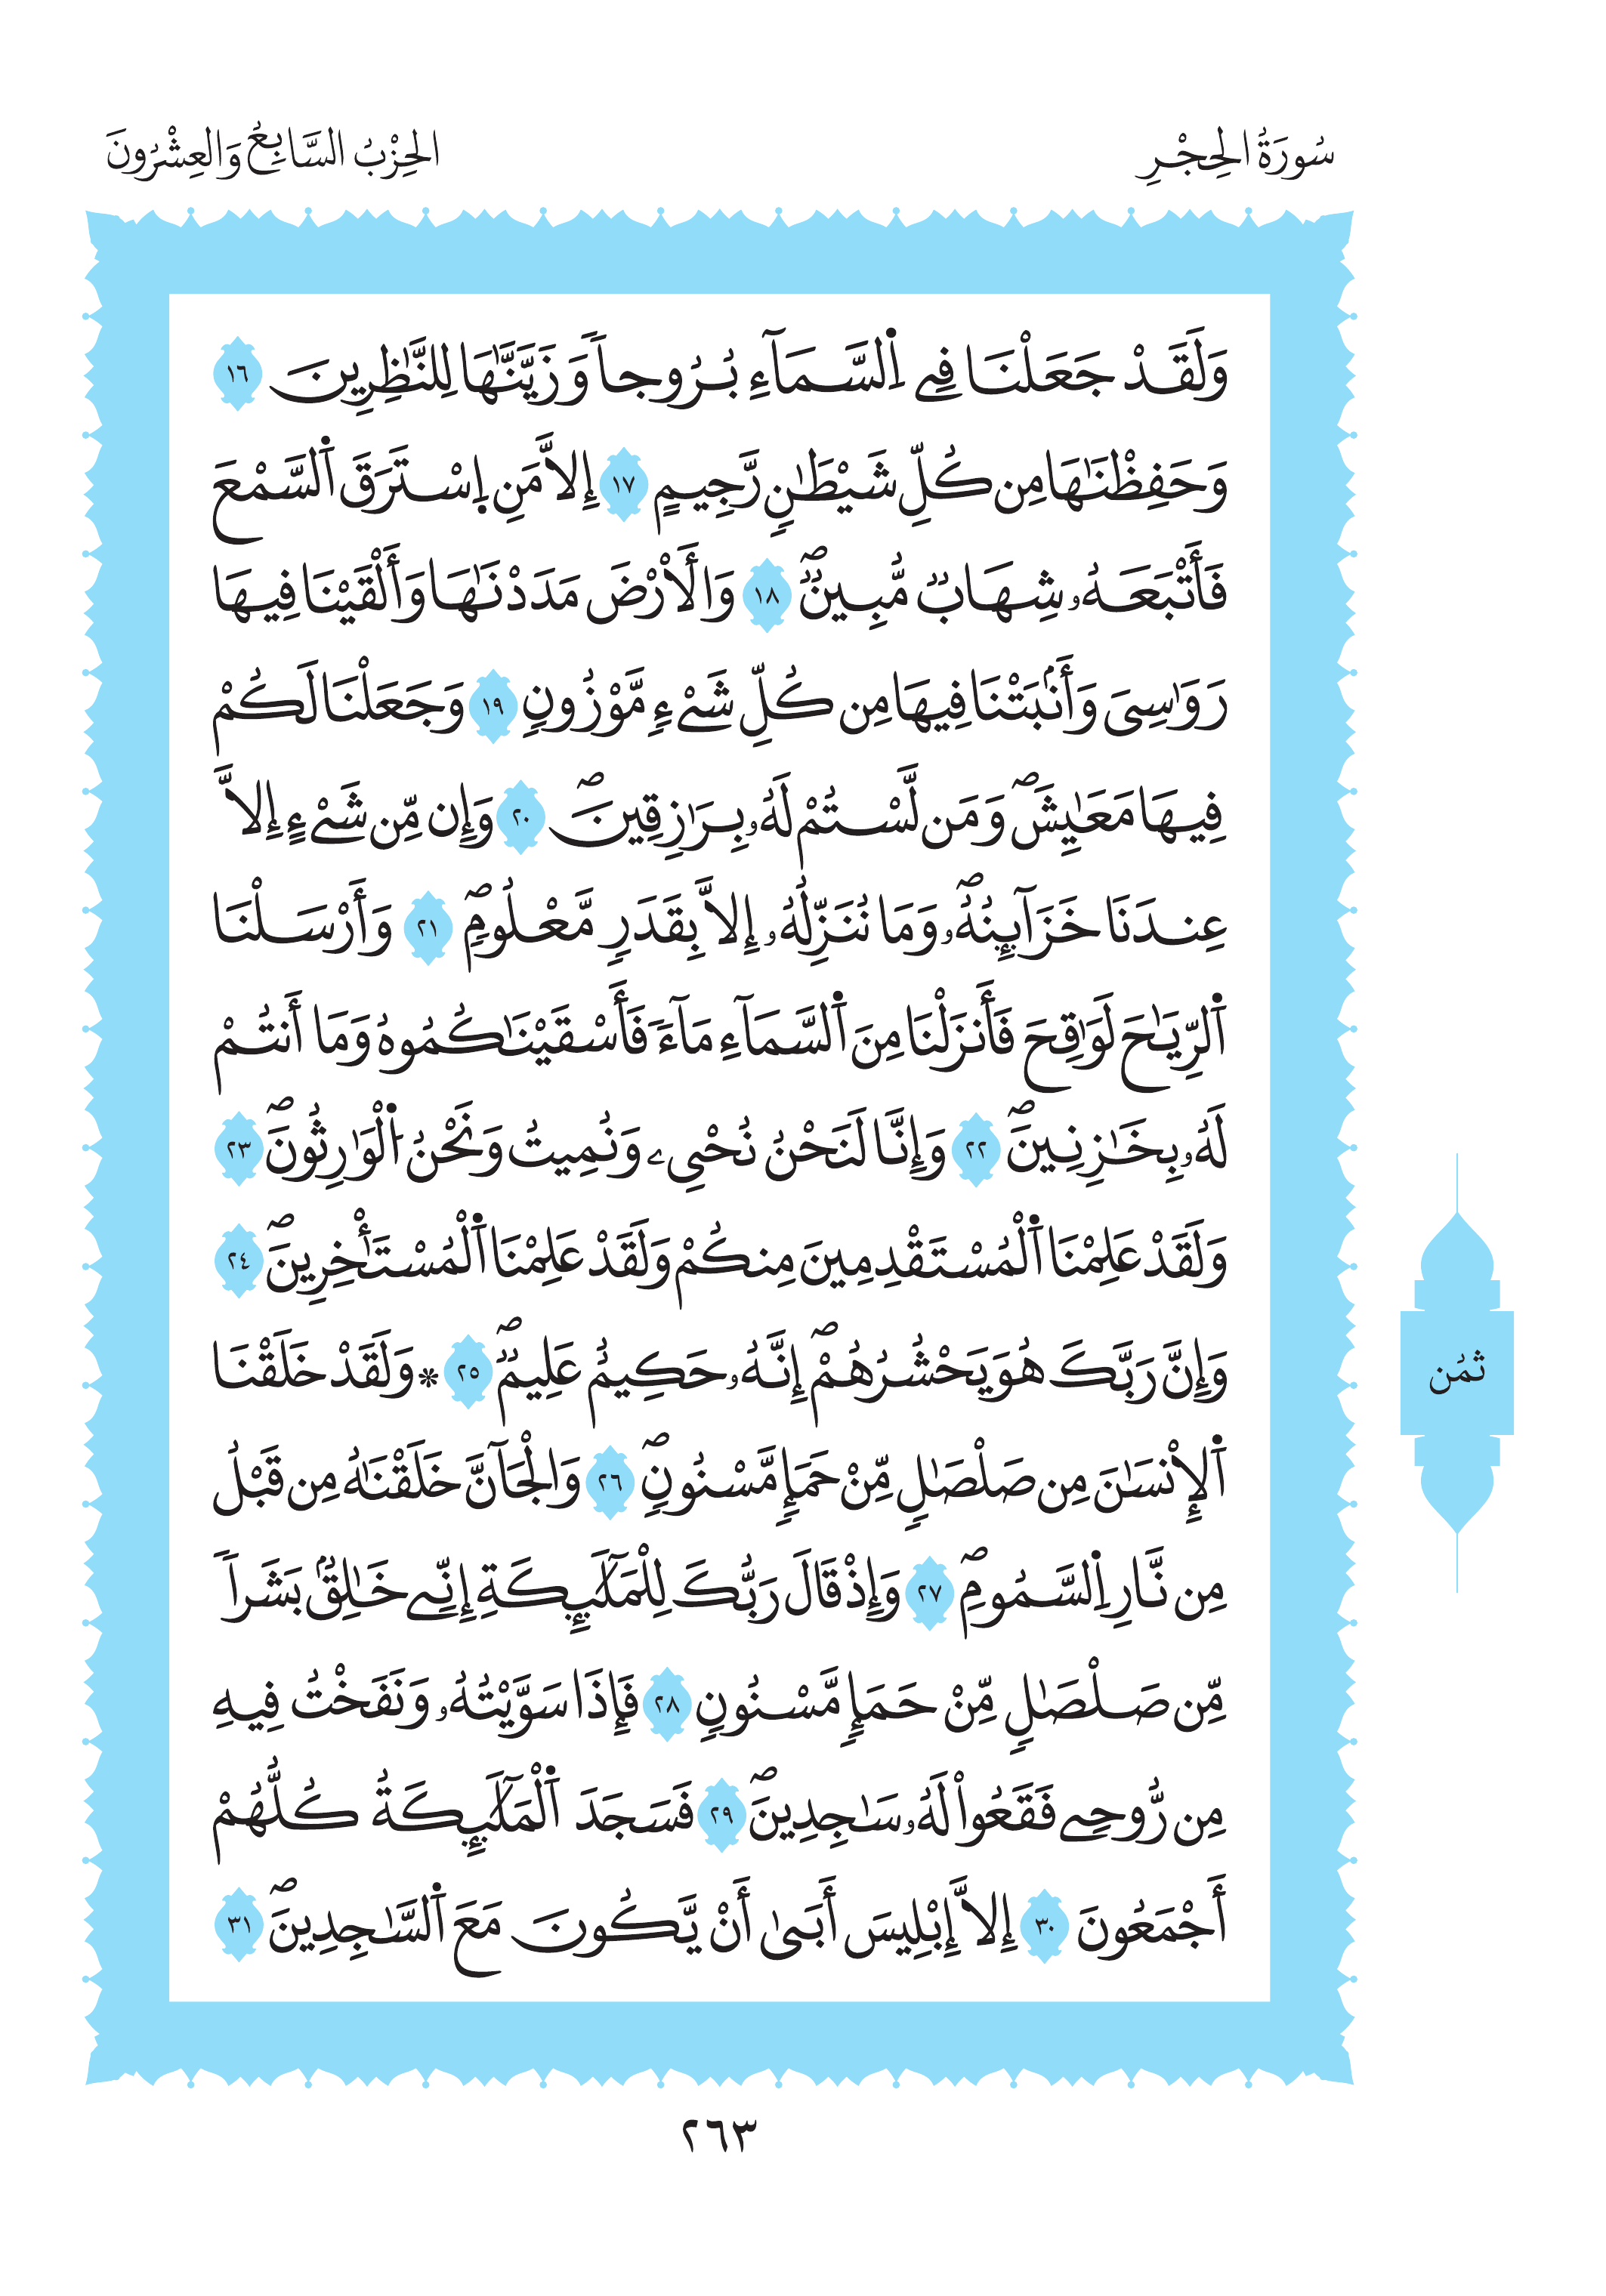 سُورَةُ الحِجْرِ
الحِزْبُ السَّابِعُ وَالعِشْرُونَ
وَلَقَدْ جَعَلْنَا فِے اِ۬لسَّمَآءِ بُرُوجاٗ وَزَيَّنَّٰهَا لِلنَّٰظِرِينَ ١٦
وَحَفِظْنَٰهَا مِن كُلِّ شَيْطَٰنٖ رَّجِيمٍ ١٧ إِلَّا مَنِ اِ۪سْتَرَقَ اَ۬لسَّمْعَ
فَأَتْبَعَهُۥ شِهَابٞ مُّبِينٞۖ ١٨ وَالَارْضَ مَدَدْنَٰهَا وَأَلْقَيْنَا فِيهَا
رَوَٰسِيَ وَأَنۢبَتْنَا فِيهَا مِن كُلِّ شَےْءٖ مَّوْزُونٖ ١٩ وَجَعَلْنَا لَكُمْ
فِيهَا مَعَٰيِشَۖ وَمَن لَّسْتُمْ لَهُۥ بِرَٰزِقِينَۖ ٢٠ وَإِن مِّن شَےْءٍ إِلَّا
عِندَنَا خَزَآئِنُهُۥۖ وَمَا نُنَزِّلُهُۥ إِلَّا بِقَدَرٖ مَّعْلُومٖۖ ٢١ وَأَرْسَلْنَا
اَ۬لرِّيَٰحَ لَوَٰقِحَ فَأَنزَلْنَا مِنَ اَ۬لسَّمَآءِ مَآءٗ فَأَسْقَيْنَٰكُمُوهُ وَمَا أَنتُمْ
لَهُۥ بِخَٰزِنِينَۖ ٢٢ وَإِنَّا لَنَحْنُ نُحْيِۦ وَنُمِيتُ وَنَحْنُ اُ۬لْوَٰرِثُونَۖ ٢٣
وَلَقَدْ عَلِمْنَا اَ۬لْمُسْتَقْدِمِينَ مِنكُمْ وَلَقَدْ عَلِمْنَا اَ۬لْمُسْتَٰٔخِرِينَۖ ٢٤
وَإِنَّ رَبَّكَ هُوَ يَحْشُرُهُمْۖ إِنَّهُۥ حَكِيمٌ عَلِيمٞۖ ٢٥ * وَلَقَدْ خَلَقْنَا
اَ۬لْإِنسَٰنَ مِن صَلْصَٰلٖ مِّنْ حَمَإٖ مَّسْنُونٖۖ ٢٦ وَالْجَآنَّ خَلَقْنَٰهُ مِن قَبْلُ
مِن نَّارِ اِ۬لسَّمُومِۖ ٢٧ وَإِذْ قَالَ رَبُّكَ لِلْمَلَٰٓئِكَةِ إِنِّے خَٰلِقُۢ بَشَراٗ
مِّن صَلْصَٰلٖ مِّنْ حَمَإٖ مَّسْنُونٖ ٢٨ فَإِذَا سَوَّيْتُهُۥ وَنَفَخْتُ فِيهِ
مِن رُّوحِے فَقَعُواْ لَهُۥ سَٰجِدِينَۖ ٢٩ فَسَجَدَ اَ۬لْمَلَٰٓئِكَةُ كُلُّهُمْ
أَجْمَعُونَ ٣٠ إِلَّا إِبْلِيسَ أَبَىٰ أَنْ يَّكُونَ مَعَ اَ۬لسَّٰجِدِينَۖ ٣١
ثمُن
٢٦٣